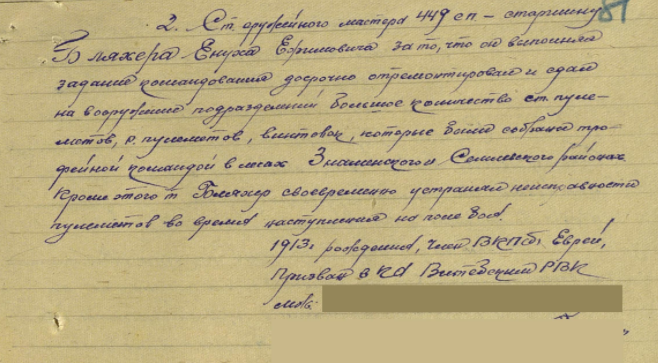 2. Ст. оружейного мастера 449 сп – старшину
Бляхера Енуха Ефимовича за то, что он выполняя
задание командования досрочно отремонтировал и сдал
на вооружение подразделений большое количество ст. пуле-
метов, р. пулеметов, винтовок, которые были собраны тро-
фейной командой в лесах Знаменского и Семлевского районах.
Кроме этого т. Бляхер своевременно устранял неисправности
пулеметов во время наступления на поле боя.
1913г. рождения, член ВКПб, Еврей,
Призван в КА Витебским РВК